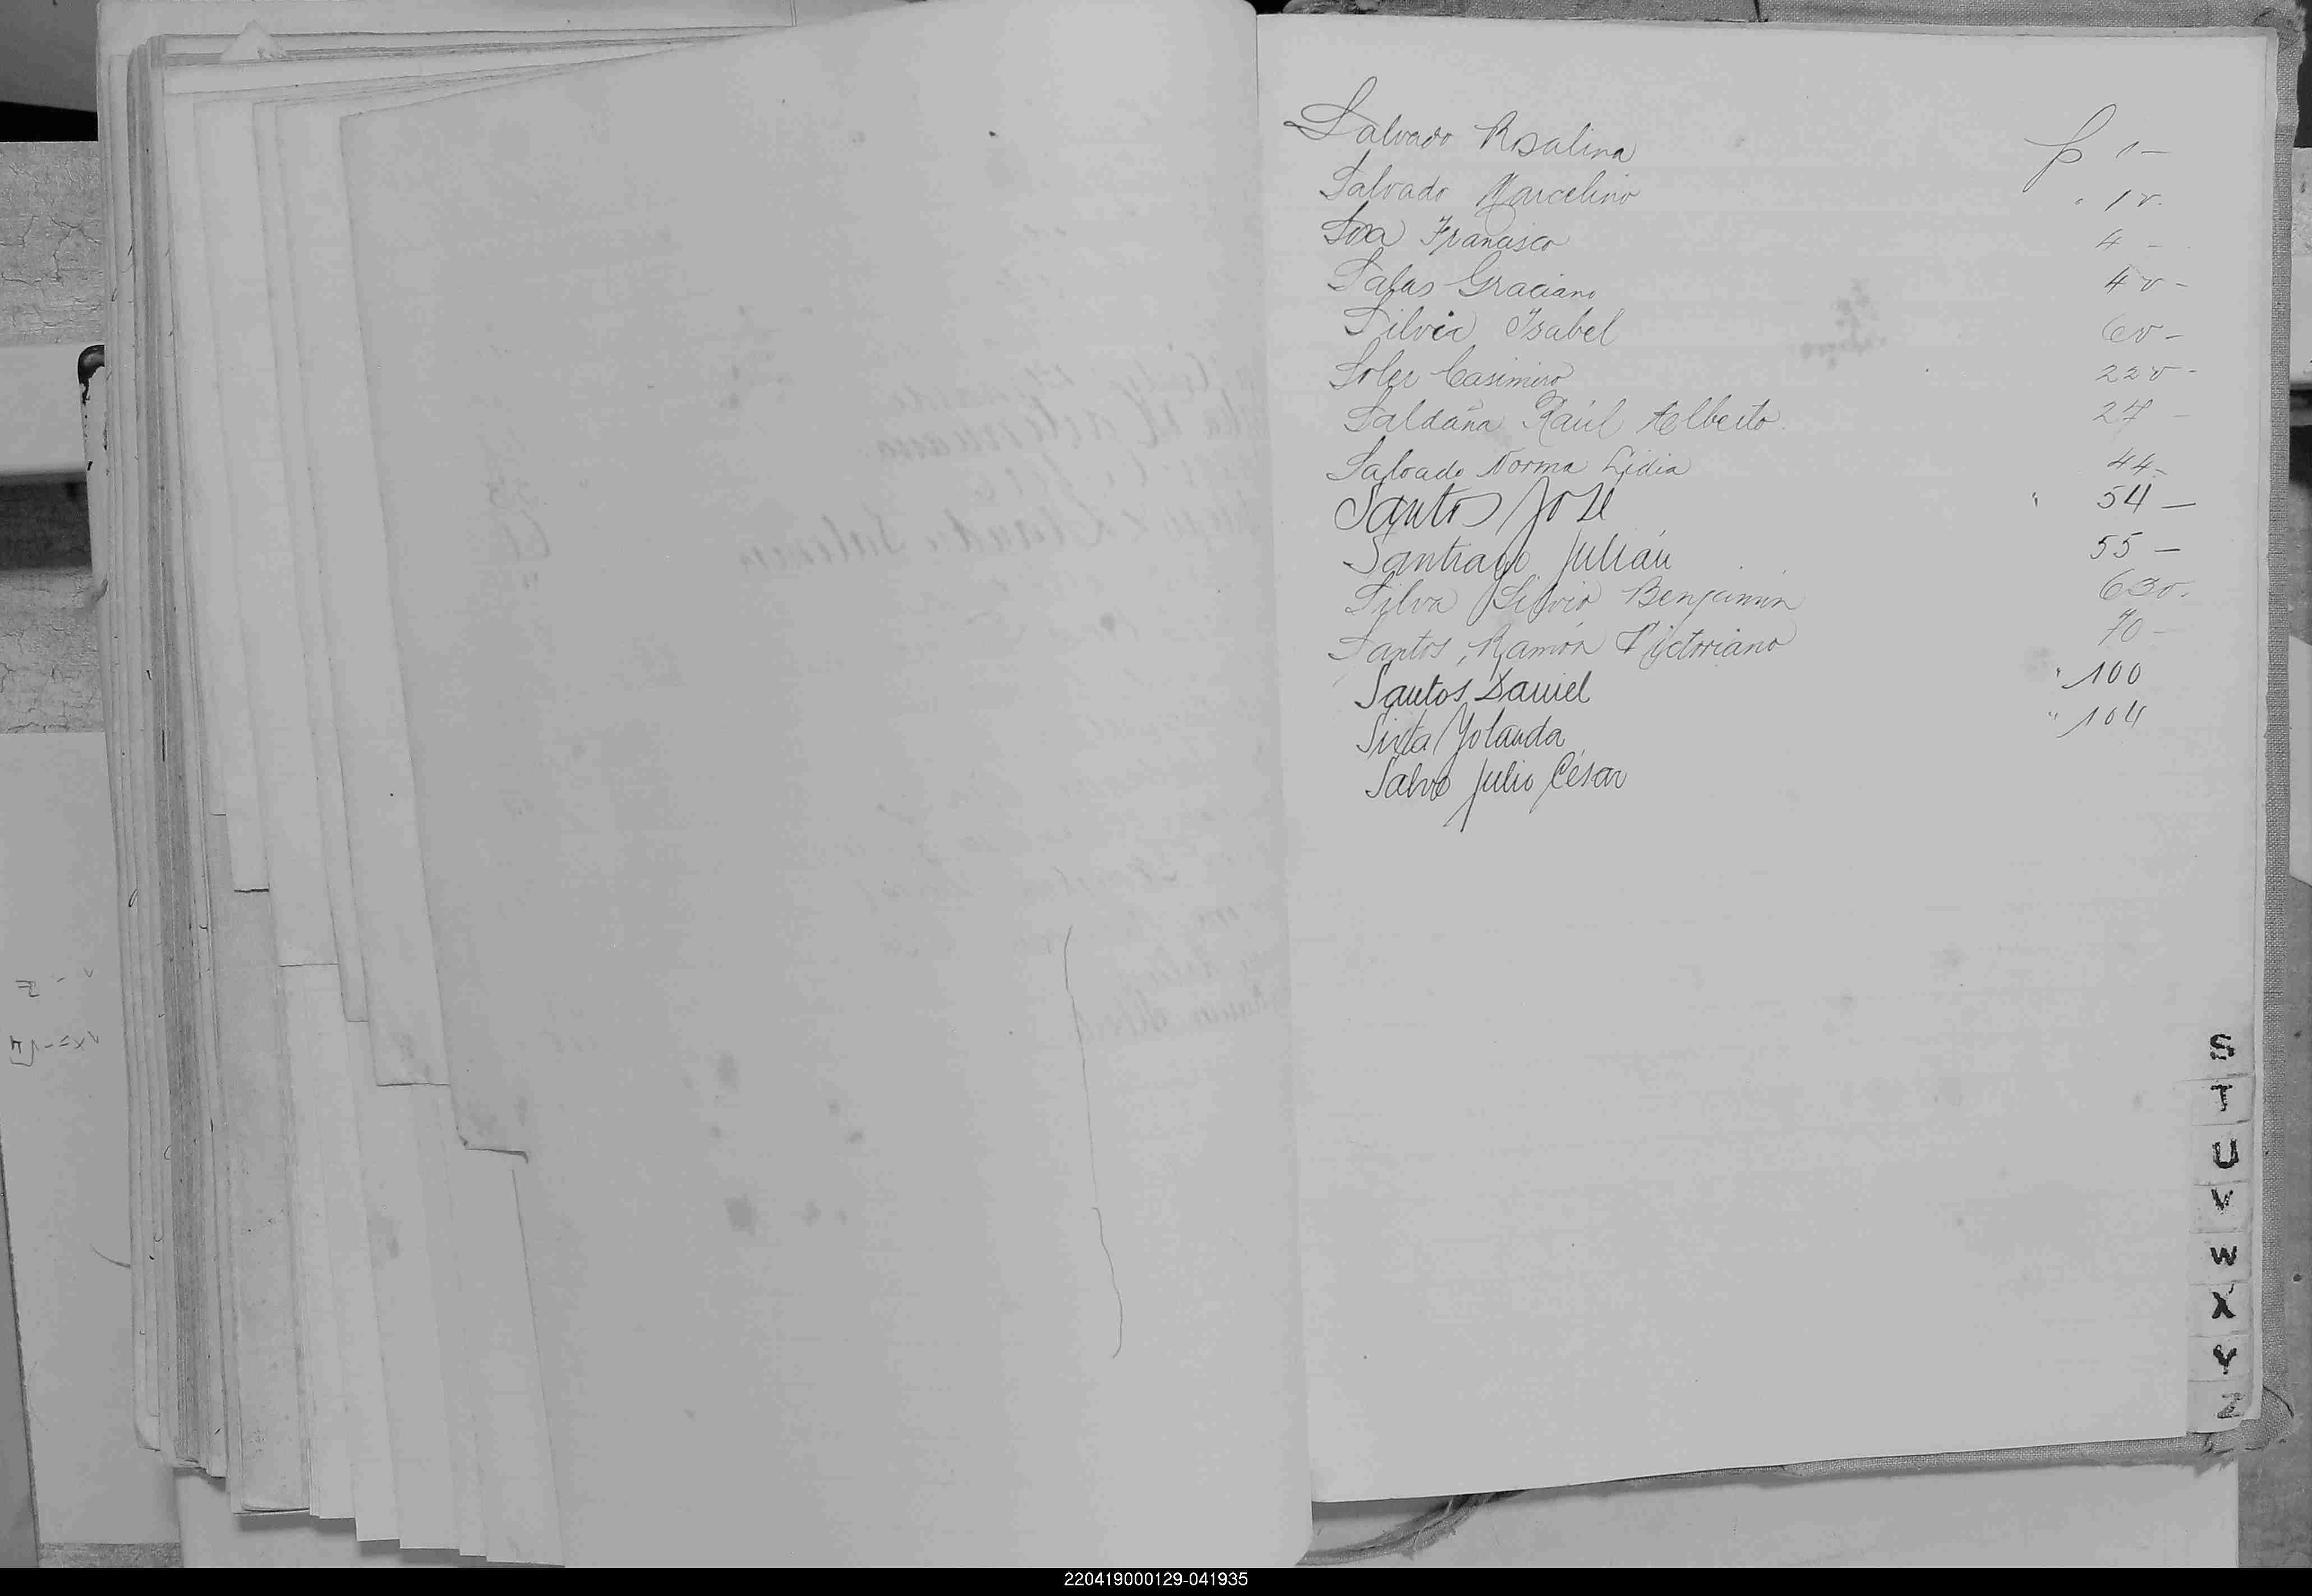 Salvado Rosalina f 1-
Salvado Marcelino " 1v.
Sosa Francisco 4 -
Salas Graciano 4v -
Silvia Isabel 6v -
Soler Casimiro 22v -
Saldaña Raúl Alberto. 27 -
Salvado Norma Lidia 44-
Santos José " 54 -
Santiago Julián 55 -
Silva Silvio Benjamin 63v.
Santos, Ramón Victoriano 70 -
Santos Daniel " 100
Yolanda " 104
Salvo Julio César
S
T
U
V
W
X
Y
Z
220419000129-041935